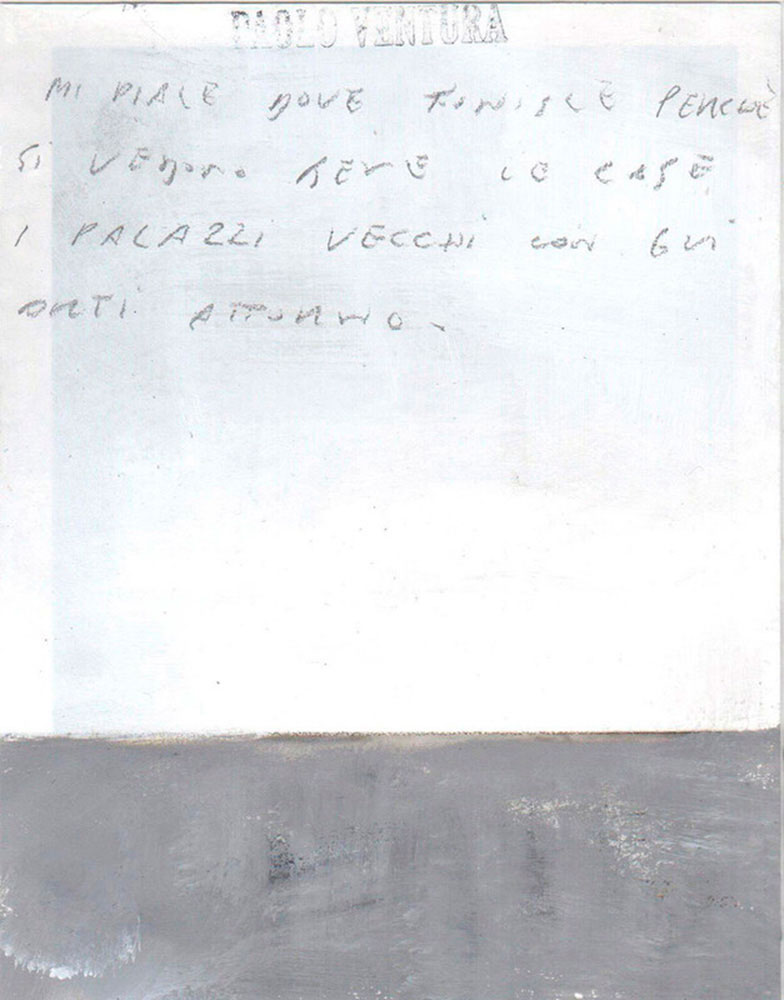 PAOLO VENTURA
MI PIACE DOVE FINISCE PERCHÈ
SI VEDONO BENE LE CASE
I PALAZZI VECCHI CON GLI
ORTI ATTORNO.